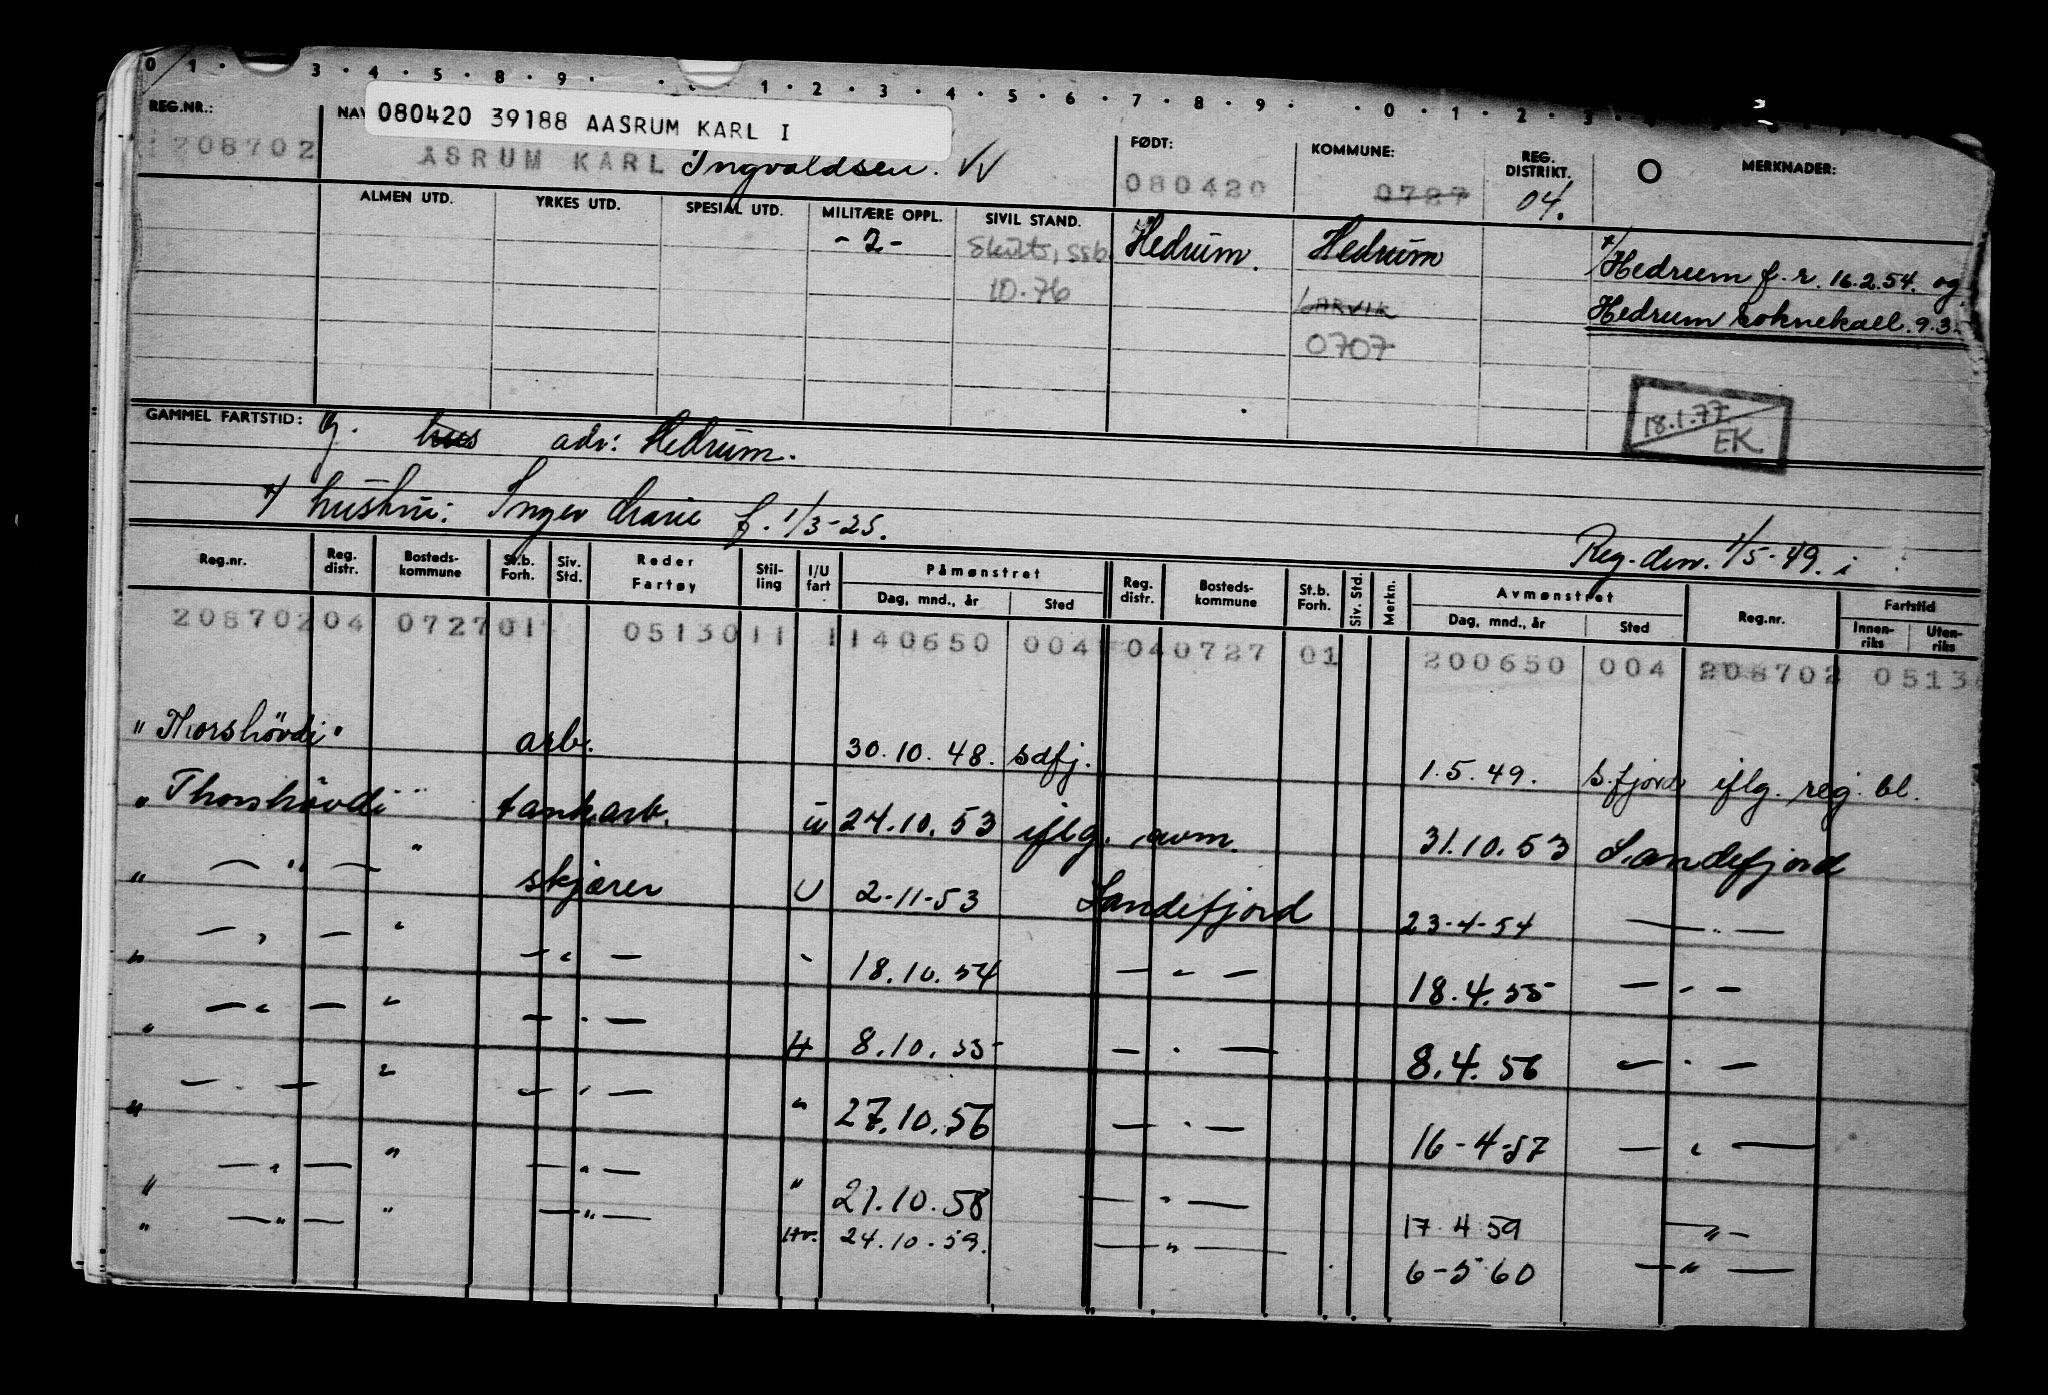 0 1 · 3 · 4 · 5 · 8 · 9 · 1 · 2 · 3 · 4 · 5 · 6 · 7 · 8 · 9 · · 0 · 1 · 2 · 3
REG.NR.: 080420 39188 AASRUM KARL I FØDT: KOMMUNE: REG. DISTRIKT. MERKNADER:
208702 ÅSRUM KARL Ingvaldsen. 080420 0727 04.
ALMEN UTD. YRKES UTD. SPESIAL UTD. MILITÆRE OPPL. SIVIL STAND.
- 2 - Skilt, ssb. Hedrum. Hedrum Hedrum f. r. 16.2.54. og
10.76 LARVIK Hedrum soknekall. 9.3.
0707
18.1.77 EK
GAMMEL FARTSTID: g. hus adr: Hedrum.
hustru: Inger Marie f. 1/3-25.
Reg. den. 1/5-49. i
Reg.nr. Reg. distr. Bosteds-kommune St.b. Forh. Siv. Std. Reder Fartøy Stil-ling I/U fart Påmønstret Dag, mnd., år Sted Reg. distr. Bosteds-kommune St.b. Forh. Siv. Std. Merkn. Avmønstret Dag, mnd., år Sted Reg.nr. Fartstid Innen-riks Uten-riks
208702 04 0727 01 0513011 1 140650 004 04 0727 01 200650 004 208702 0513
" Thorshövdi " arb. 30.10.48. sdfj. 1.5.49. S.fjord iflg. reg. bl.
" Thorshövdi " tankarb. u 24.10.53 iflg. avm. 31.10.53 Sandefjord
" — " — " skjærer U 2-11-53 Sandefjord 23-4-54 — " —
" — " — " — " — " 18.10.54 — " — 18.4.55 — " —
" — " — " — " — H 8.10.55 — " — 8.4.56 — " —
" — " — " — " — " 27.10.56 — " — 16-4-57 — " —
" — " — " — " — " 21.10.58 — " — 17 4 59 — " —
" — " — " — " — Hv. 24.10.59. — " — 6-5-60 — " —